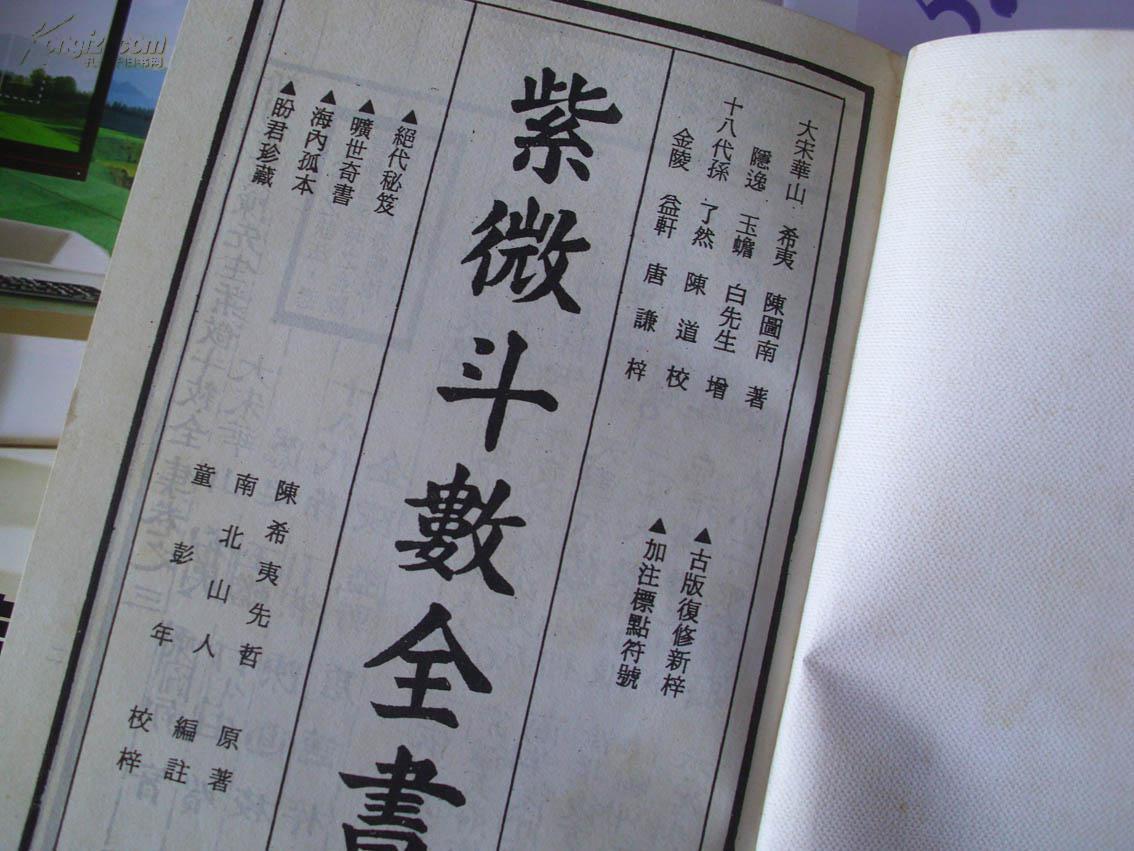 大宋華山 希夷 陳圖南 著
隱逸 玉蟾 白先生 增
十八代孫 了然 陳道 校
金陵 益軒 唐謙 梓
▲古版復修新梓
▲加注標點符號
紫微斗數全書
▲絕代秘笈
▲曠世奇書
▲海內孤本
▲盼君珍藏
陳希夷先哲 原著
南北山人 編註
童彭年 校梓
Kongfz.com
孔夫子旧书网